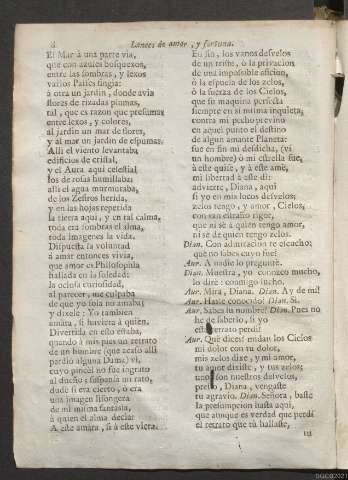 Lances de amor, y fortuna.
El Mar à una parte via,
que con azules bosquexos,
entre las sombras, y lexos
varios Paises fingia:
à otra un jardin, donde avia
flores de rizadas plumas,
tal, que es razon que presumas
entre lexos, y colores,
al jardin un mar de flores,
y al mar un jardin de espumas.
Alli el viento levantaba
edificios de cristal,
y el Aura aqui celestial
los de rosas humillaba:
alli el agua murmuraba,
de los Zefiros herida,
y en las hojas repetida
la tierra aqui, y en tal calma,
toda era sombras el alma,
toda imagenes la vida.
Dispuesta la voluntad
à amar entonces vivia,
que amor es Philosophia
hallada en la soledad:
la ociosa curiosidad,
al parecer, me culpaba
de que yo sola no amaba;
y dixele: Yo tambien
amàra, si huviera à quien.
Divertida en esto estaba,
quando à mis pies un retrato
de un hombre (que acaso alli
perdiò alguna Dama) vi,
cuyo pincèl no fue ingrato
al dueño; suspensa un rato,
dudè si era cierto, ò era
una imagen lisongera
de mi misma fantasia,
à quien el alma decia:
A este amàra, si à este viera.
En fin, los vanos desvelos
de un triste, ò la privacion
de una impossible aficion,
ò la espuela de los zelos,
ò la fuerza de los Cielos,
que su maquina perfecta
siempre en si misma inquieta,
contra mi pecho previno
en aquel punto el destino
de algun amante Planeta:
fue en fin mi desdicha, (vi
un hombre) ò mi estrella fue,
à este quise, y à este amè,
mi libertad à este dì:
advierte, Diana, aqui
si yo en mis locos desvelos,
zelos tengo, y amor, Cielos,
con tan estraño rigor,
que ni sè à quien tengo amor,
ni sè de quien tengo zelos.
Dian. Con admiracion te escucho;
què no sabes cuyo fue?
Aur. A nadie lo preguntè.
Dian. Muestra, yo conozco mucho,
lo dirè: conmigo lucho.
Aur. Mira, Diana. Dian. Ay de mì!
Aur. Hasle conocido? Dian. Sì.
Aur. Sabes su nombre? Dian. Pues no
he de saberlo, si yo
este retrato perdì?
Aur. Què dices? midan los Cielos
mi dolor con tu dolor,
mis zelos dixe, y mi amor,
tu amor dixiste, y tus zelos;
unos son nuestros desvelos,
presto, Diana, vengaste
tu agravio. Dian. Señora, baste
la presumpcion hasta aqui,
que aunque es verdad que perdì
el retrato que tù hallaste,